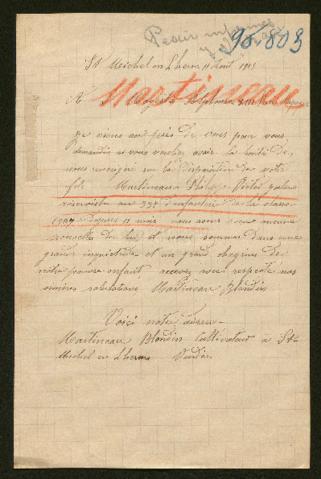 90.803
St Michel en Lherm 11 août 1915
Martineau
A
je viens auprès de vous pour vous
demander si vous voulez avoir la bonté de
nous renseigné sur la disparition de notre
fils Martineau
réserviste au 337 d'infanterie de la classe
1909 depuis 11 mois nous avons aucune
nouvelle de lui et nous sommes dans une
grande inquiétude et un grand chagrin de
notre pauvre enfant recevez nos
salutations Martineau Blandin
Voici notre adresse
Martineau Blandin Cultivateur à St
Michel en Lherm Vendée